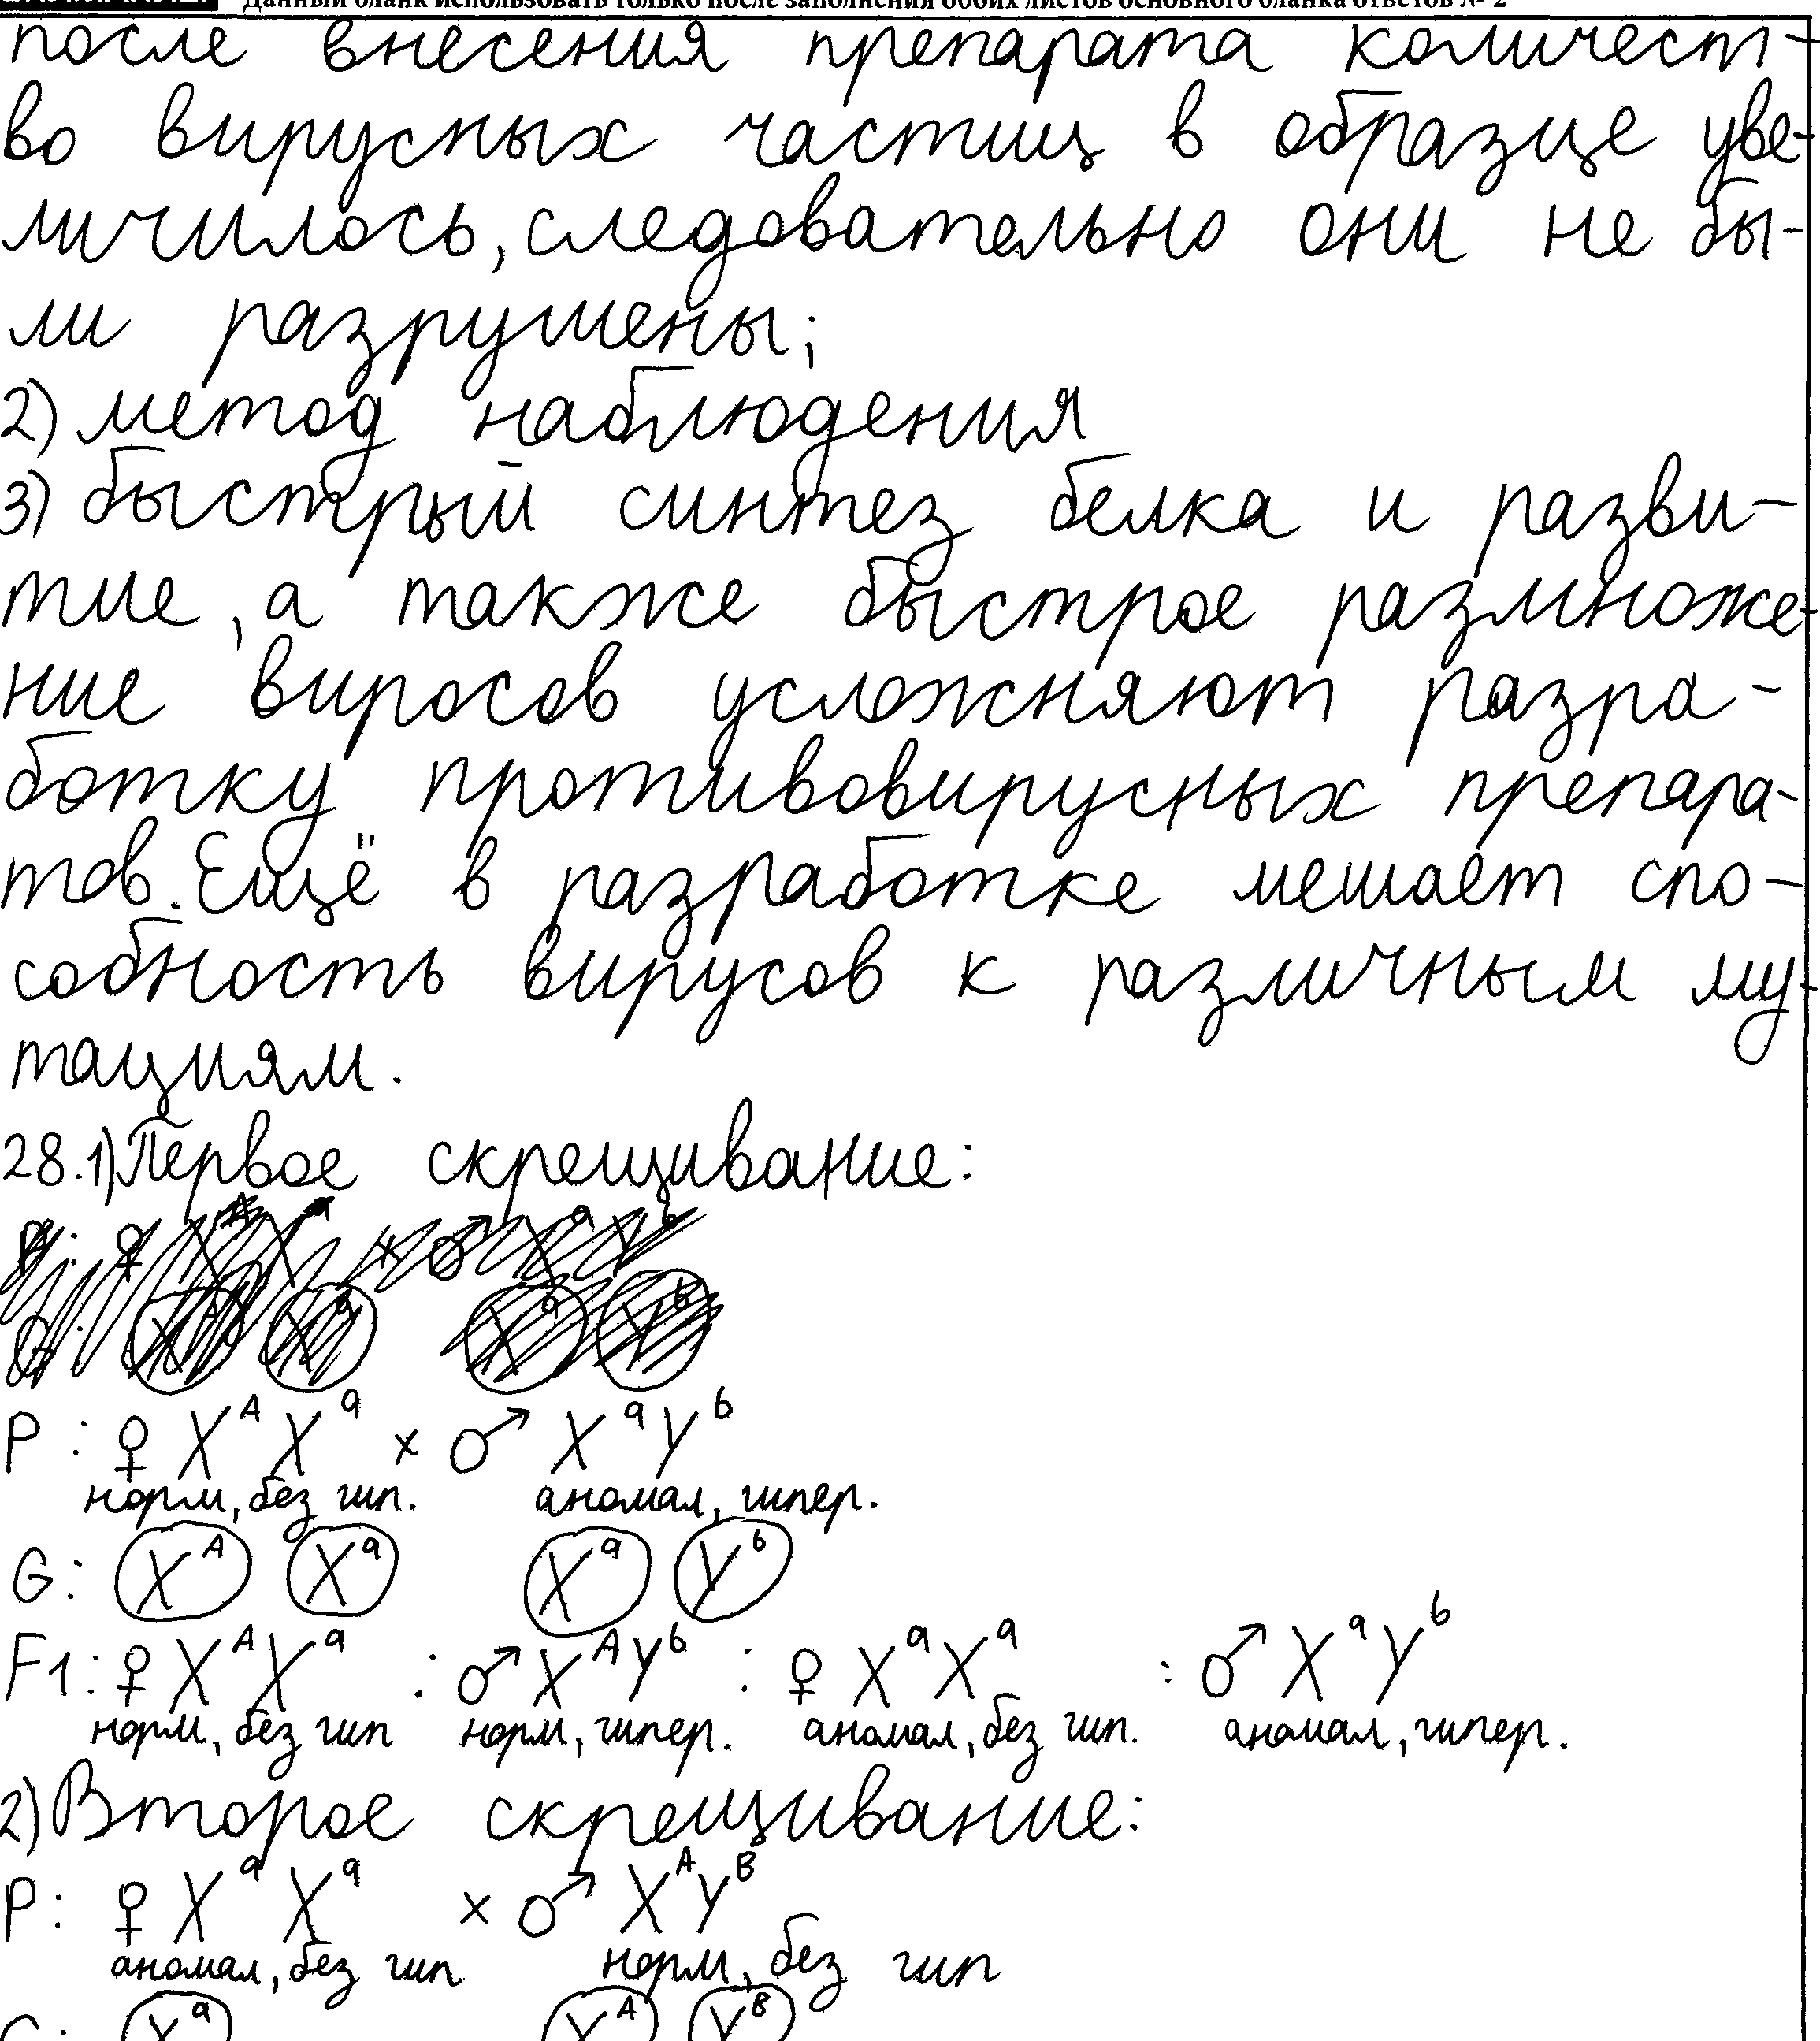 Данный бланк использовать только после заполнения обоих листов основного бланка ответов № 2
после внесения препарата количест-
во вирусных частиц в образце уве-
личилось, следовательно они не бы-
ли разрушены;
2) метод наблюдения
3) быстрый синтез белка и разви-
тие, а также быстрое размноже-
ние виросов усложняют разра-
ботку противовирусных препара-
тов. Ещё в разработке мешает спо-
собность вирусов к различным му-
тациям.
28.1) Первое скрещивание:
P: ♀ X^A X^a × ♂ X^a Y^b
норм, без гип. аномал, гипер.
G: X^A X^a X^a Y^b
F1: ♀ X^A X^a : ♂ X^A Y^b : ♀ X^a X^a : ♂ X^a Y^b
норм, без гип норм, гипер. аномал, без гип. аномал, гипер.
2) Второе скрещивание:
P: ♀ X^a X^a × ♂ X^A Y^B
аномал, без гип норм, без гип
G: X^a X^A Y^B